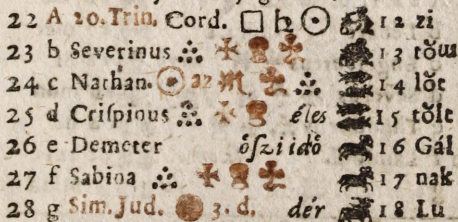 22 A 20. Trin. Cord. □ ♄ ☉ 12 zi
23 b Severinus 13 tŏw
24 c Nathan. ☉ 22 ♏ 14 lŏt
25 d Criſpinus éles 15 tŏlt
26 e Demeter ŏſzi idŏ 16 Gál
27 f Sabina 17 nak
28 g Sim. Jud. 3. d. dér 18 Lu